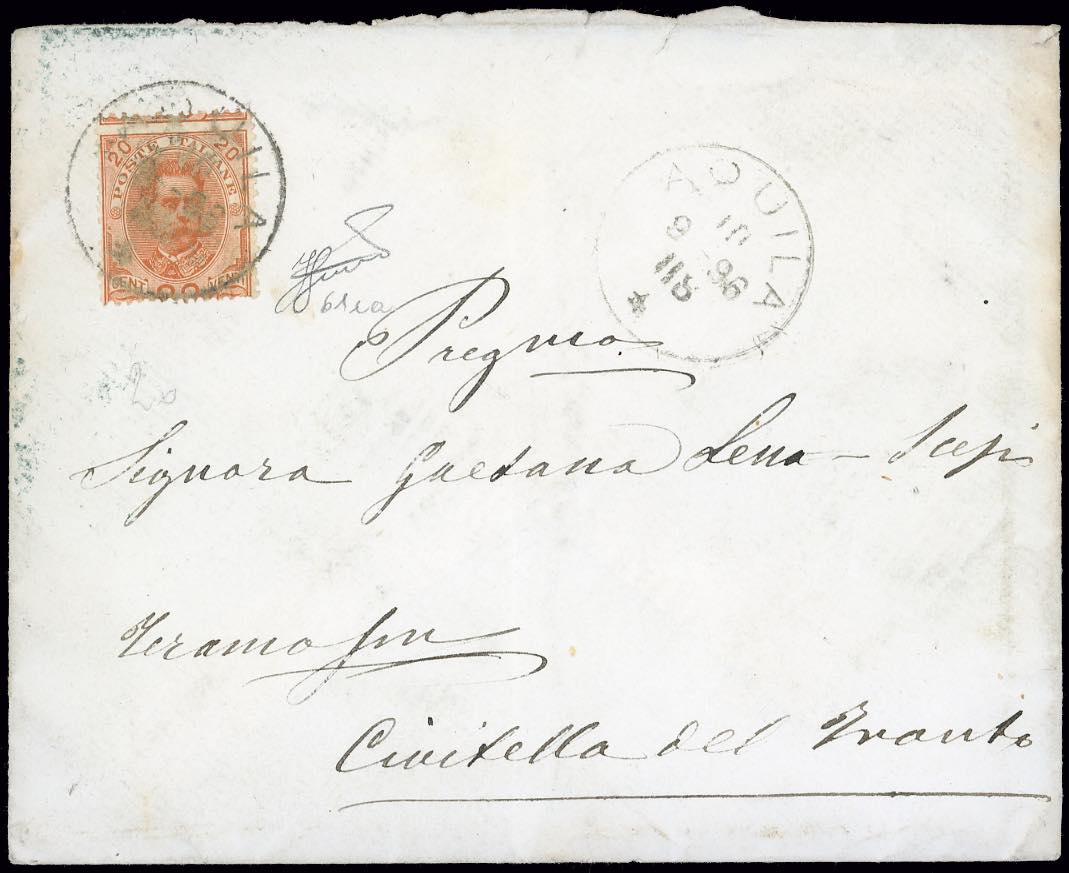 20 20
POSTE ITALIANE
CENT. 20 VENTI
AQUILA
AQUILA
10
9 96
11 S
20
Pregma
Signora Gaetana Lena - Scepi
Teramo per
Civitella del Tronto